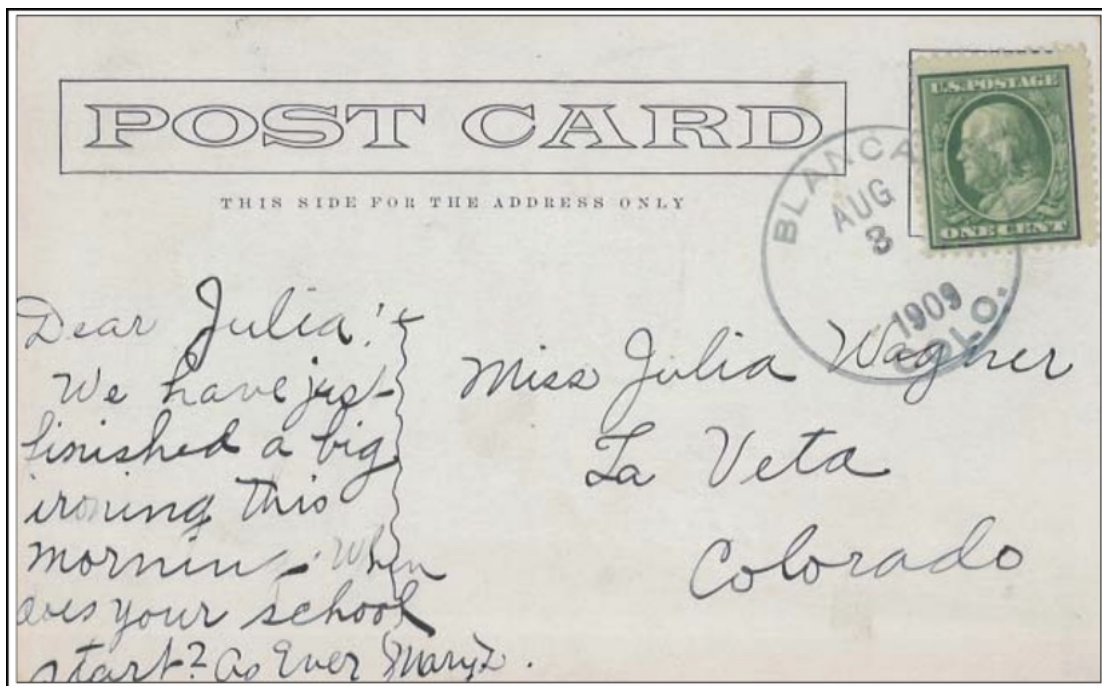 POST CARD
THIS SIDE FOR THE ADDRESS ONLY
U.S. POSTAGE
ONE CENT
BLANCA
AUG
3
1909
COLO.
Dear Julia:
We have just
finished a big
ironing this
morning. When
does your school
start? As Ever Mary
Miss Julia Wagner
La Veta
Colorado